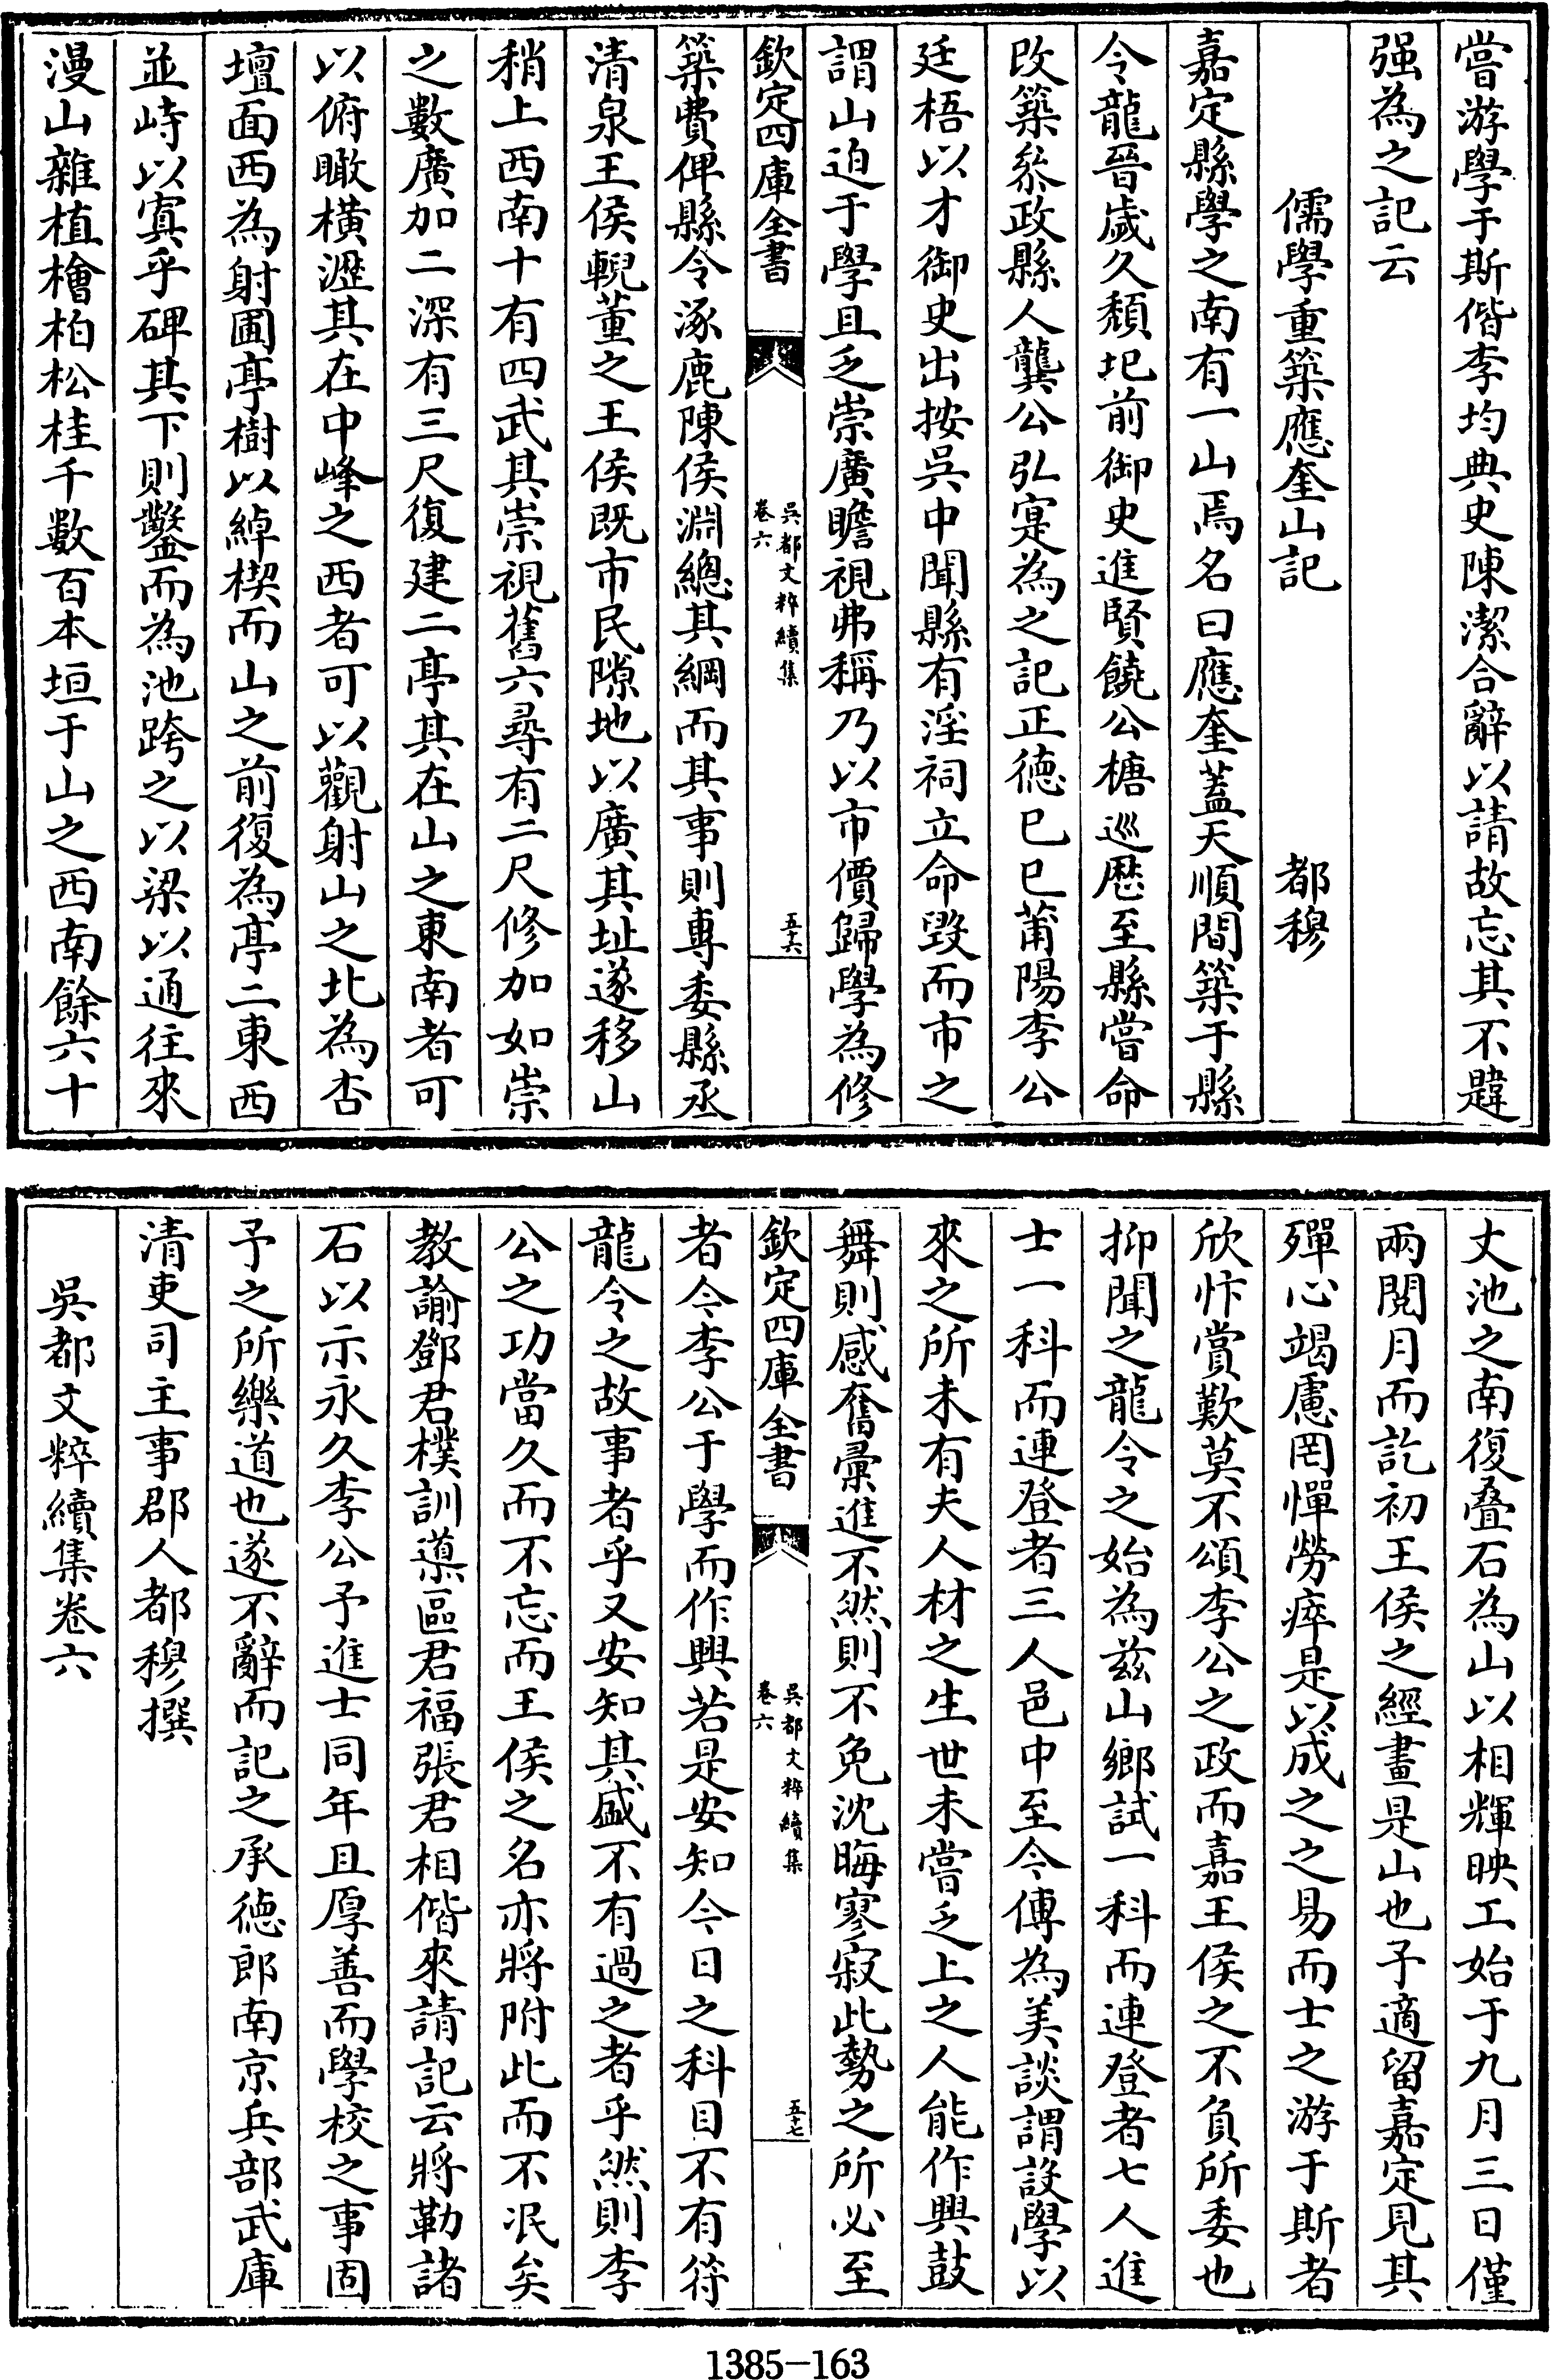 嘗游學于斯偕李均典史陳潔合辭以請故忘其不韙
强為之記云
儒學重築應奎山記　都穆
嘉定縣學之南有一山焉名曰應奎蓋天順間築于縣
令龍晉歲久頽圮前御史進賢饒公榶巡歴至縣嘗命
改築叅政縣人龔公弘寔為之記正德己巳莆陽李公
廷梧以才御史出按吳中聞縣有淫祠立命毀而市之
謂山迫于學且乏崇廣瞻視弗稱乃以市價歸學為修
欽定四庫全書
吳都文粹續集
卷六
五十六
築費俾縣令涿鹿陳侯淵總其綱而其事則專委縣丞
清泉王侯輗董之王侯既市民隙地以廣其址遂移山
稍上西南十有四武其崇視舊六尋有二尺修加如崇
之數廣加二深有三尺復建二亭其在山之東南者可
以俯瞰橫瀝其在中峰之西者可以觀射山之北為杏
壇面西為射圃亭樹以綽楔而山之前復為亭二東西
並峙以寘乎碑其下則鑿而為池跨之以梁以通往來
漫山雜植檜柏松桂千數百本垣于山之西南餘六十
丈池之南復叠石為山以相輝映工始于九月三日僅
兩閱月而訖初王侯之經畫是山也予適留嘉定見其
殫心竭慮罔憚勞瘁是以成之之易而士之游于斯者
欣忭賞歎莫不頌李公之政而嘉王侯之不負所委也
抑聞之龍令之始為兹山鄉試一科而連登者七人進
士一科而連登者三人邑中至今傳為美談謂設學以
來之所未有夫人材之生世未嘗乏上之人能作興鼓
舞則感奮彚進不然則不免沈晦寥寂此勢之所必至
欽定四庫全書
吳都文粹續集
卷六
五十七
者今李公于學而作興若是安知今日之科目不有符
龍令之故事者乎又安知其盛不有過之者乎然則李
公之功當久而不忘而王侯之名亦將附此而不泯矣
教諭鄧君樸訓導區君福張君相偕來請記云將勒諸
石以示永久李公予進士同年且厚善而學校之事固
予之所樂道也遂不辭而記之承德郎南京兵部武庫
清吏司主事郡人都穆撰
吳都文粹續集卷六
1385-163